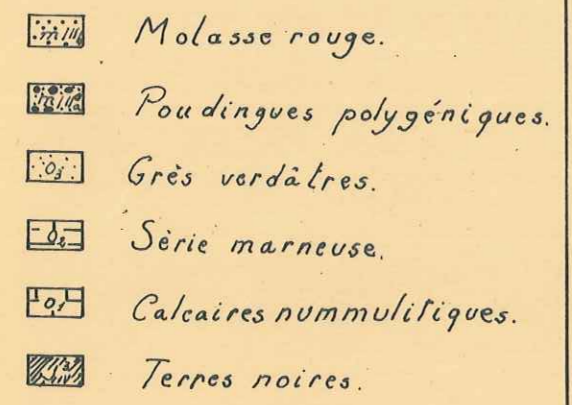 Molasse rouge.
Poudingues polygéniques.
O3 Grès verdâtres.
O2 Série marneuse.
O1 Calcaires nummulitiques.
Terres noires.